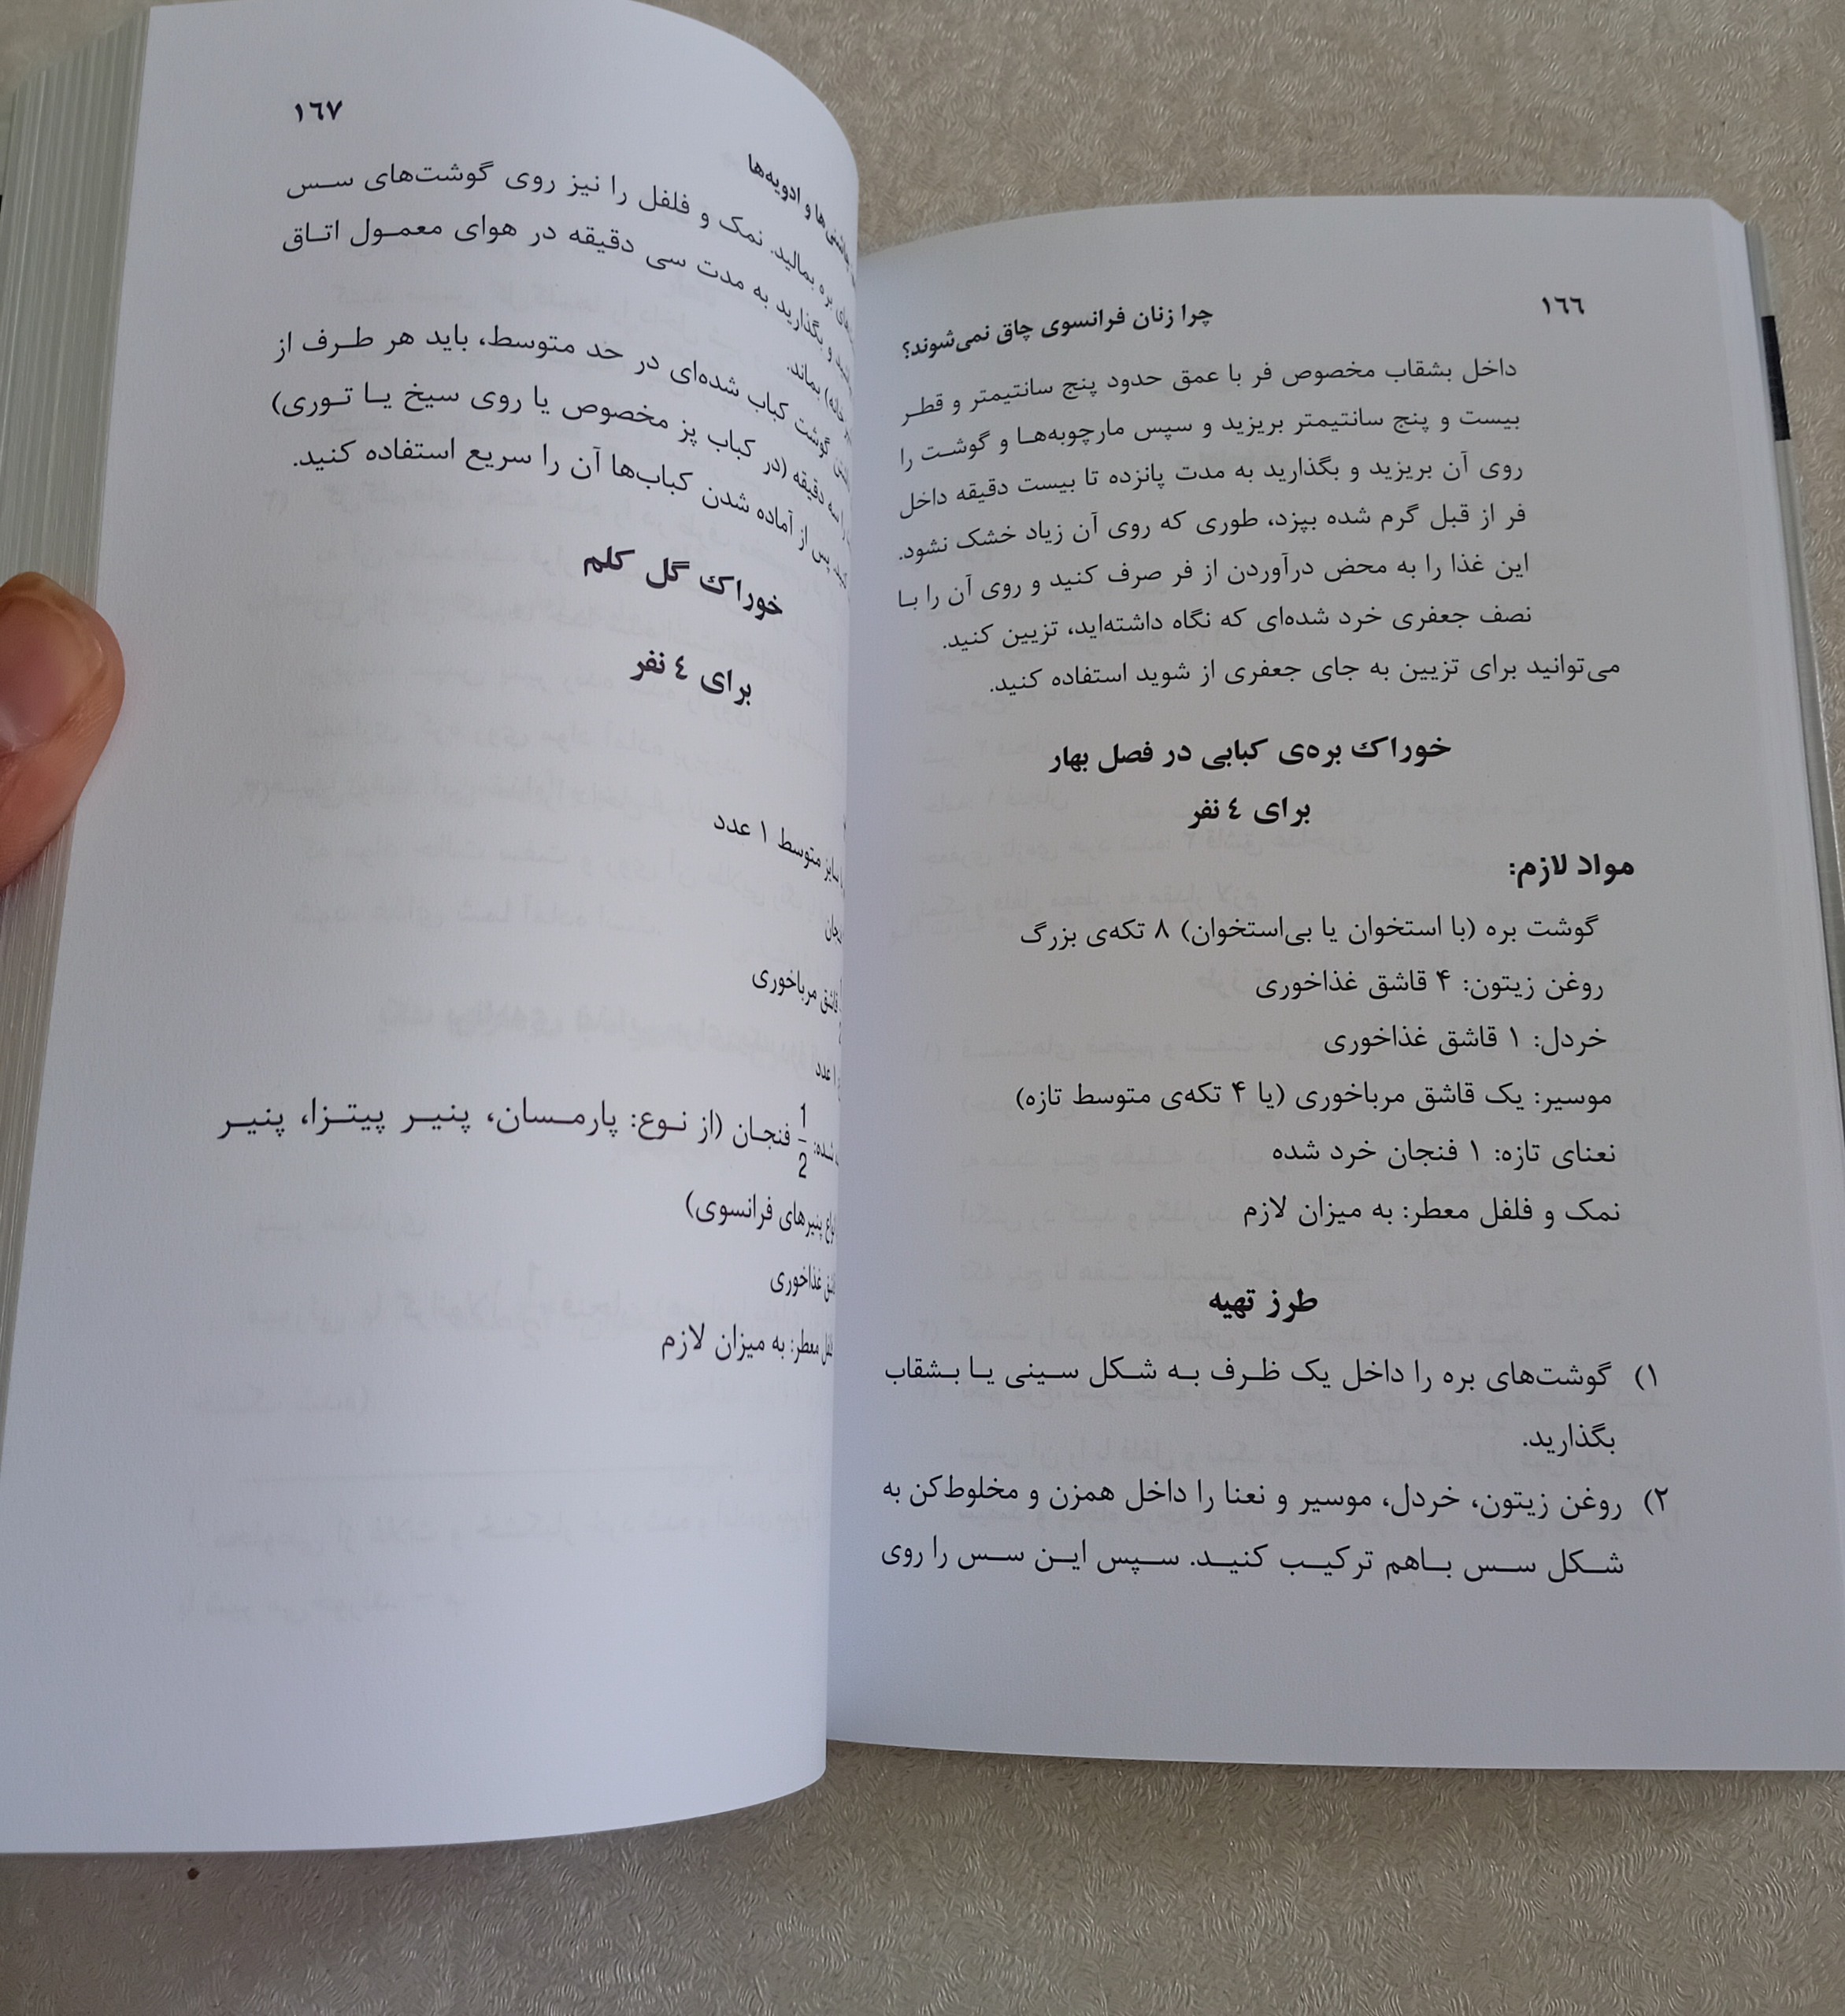 ١٦٦
چرا زنان فرانسوی چاق نمی‌شوند؟
داخل بشقاب مخصوص فر با عمق حدود پنج سانتیمتر و قطر
بیست و پنج سانتیمتر بریزید و سپس مارچوبه‌ها و گوشت را
روی آن بریزید و بگذارید به مدت پانزده تا بیست دقیقه داخل
فر از قبل گرم شده بپزد، طوری که روی آن زیاد خشک نشود.
این غذا را به محض درآوردن از فر صرف کنید و روی آن را با
نصف جعفری خرد شده‌ای که نگاه داشته‌اید، تزیین کنید.
می‌توانید برای تزیین به جای جعفری از شوید استفاده کنید.
خوراک بره‌ی کبابی در فصل بهار
برای ٤ نفر
مواد لازم:
گوشت بره (با استخوان یا بی‌استخوان) ۸ تکه‌ی بزرگ
روغن زیتون: ۴ قاشق غذاخوری
خردل: ۱ قاشق غذاخوری
موسیر: یک قاشق مرباخوری (یا ۴ تکه‌ی متوسط تازه)
نعنای تازه: ۱ فنجان خرد شده
نمک و فلفل معطر: به میزان لازم
طرز تهیه
۱) گوشت‌های بره را داخل یک ظرف به شکل سینی یا بشقاب
بگذارید.
۲) روغن زیتون، خردل، موسیر و نعنا را داخل همزن و مخلوط‌کن به
شکل سس باهم ترکیب کنید. سپس این سس را روی
١٦٧
و ادویه‌ها
بره بمالید. نمک و فلفل را نیز روی گوشت‌های سس
و بگذارید به مدت سی دقیقه در هوای معمول اتاق
بماند.
گوشت کباب شده‌ای در حد متوسط، باید هر طرف از
سه دقیقه (در کباب پز مخصوص یا روی سیخ یا توری)
پس از آماده شدن کباب‌ها آن را سریع استفاده کنید.
خوراک گل کلم
برای ٤ نفر
سایز متوسط ۱ عدد
قاشق مرباخوری
۱ عدد
شده: 1/2 فنجان (از نوع: پارمسان، پنیر پیتزا، پنیر
پنیرهای فرانسوی)
غذاخوری
معطر: به میزان لازم